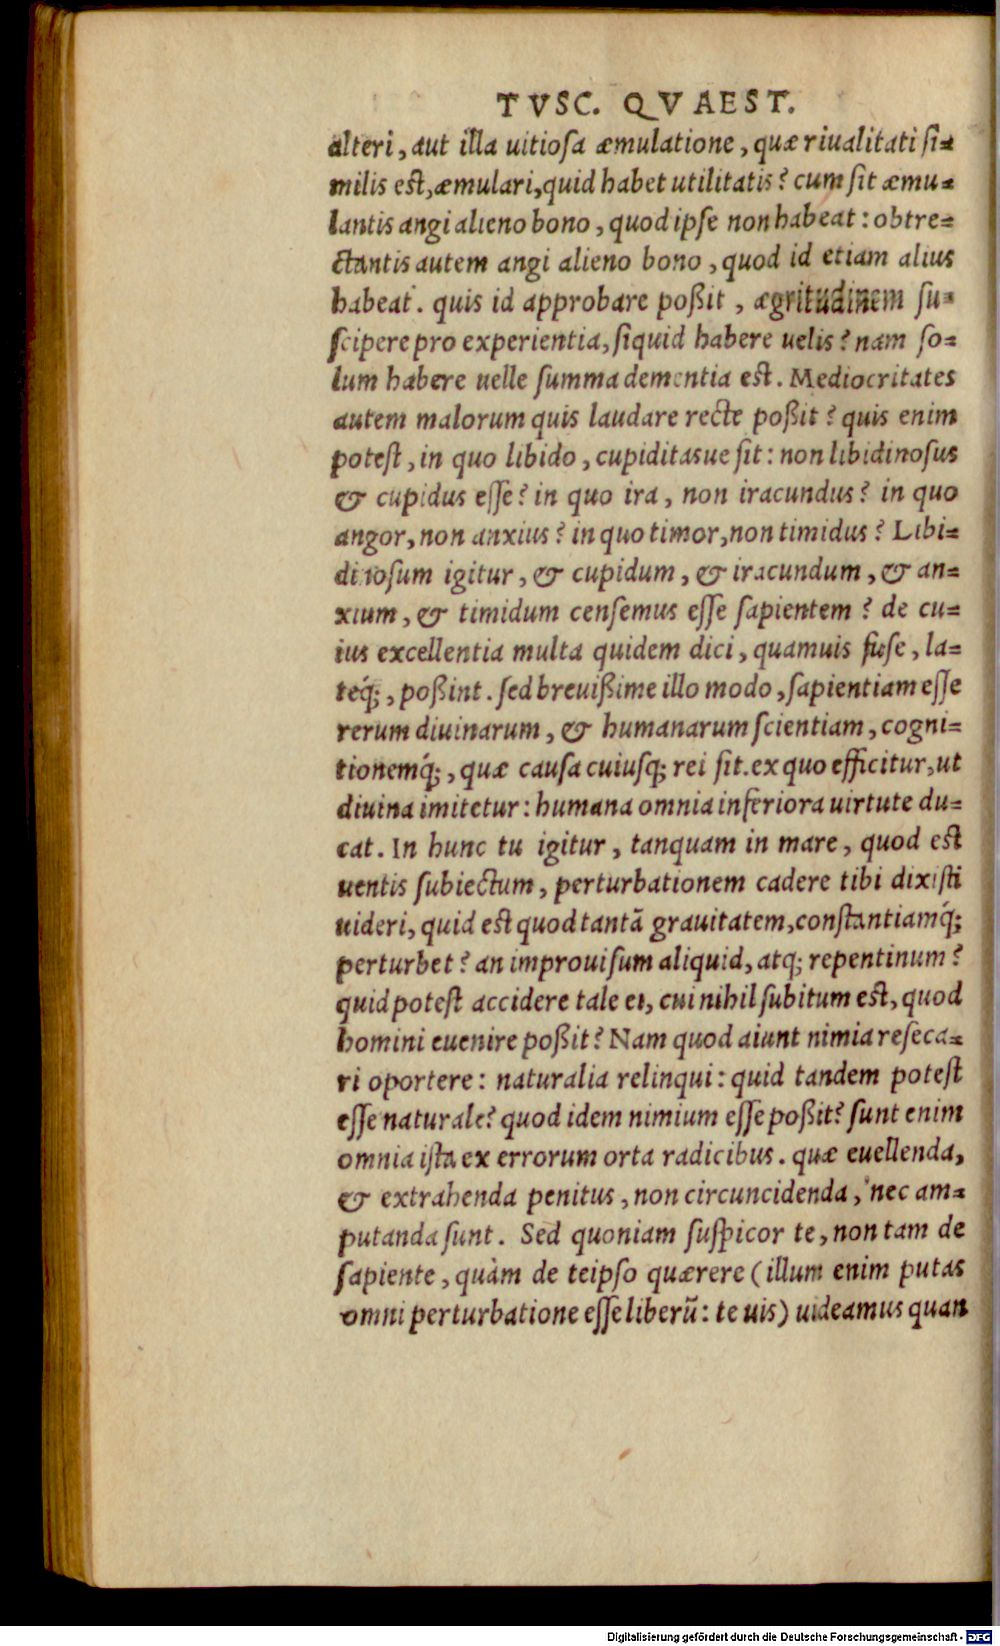 TVSC. QVAEST.
alteri, aut illa uitiosa æmulatione, quæ riualitati si=
milis est, æmulari, quid habet utilitatis? cum sit æmu=
lantis angi alieno bono, quod ipse non habeat: obtre=
ctantis autem angi alieno bono, quod id etiam alius
habeat. quis id approbare poßit, ægritudinem su=
scipere pro experientia, siquid habere uelis? nam so=
lum habere uelle summa dementia est. Mediocritates
autem malorum quis laudare recte poßit? quis enim
potest, in quo libido, cupiditasue sit: non libidinosus
& cupidus esse? in quo ira, non iracundus? in quo
angor, non anxius? in quo timor, non timidus? Libi=
dinosum igitur, & cupidum, & iracundum, & an=
xium, & timidum censemus esse sapientem? de cu=
ius excellentia multa quidem dici, quamuis fuse, la=
teq́;, poßint. sed breuißime illo modo, sapientiam esse
rerum diuinarum, & humanarum scientiam, cogni=
tionemq́;, quæ causa cuiusq; rei sit. ex quo efficitur, ut
diuina imitetur: humana omnia inferiora uirtute du=
cat. In hunc tu igitur, tanquam in mare, quod est
uentis subiectum, perturbationem cadere tibi dixisti
uideri, quid est quod tantã grauitatem, constantiamq́;
perturbet? an improuisum aliquid, atq; repentinum?
quid potest accidere tale ei, cui nihil subitum est, quod
homini euenire poßit? Nam quod aiunt nimia reseca=
ri oportere: naturalia relinqui: quid tandem potest
esse naturale? quod idem nimium esse poßit? sunt enim
omnia ista ex errorum orta radicibus. quæ euellenda,
& extrahenda penitus, non circuncidenda, nec am=
putanda sunt. Sed quoniam suspicor te, non tam de
sapiente, quàm de teipso quærere (illum enim putas
omni perturbatione esse liberũ: te uis) uideamus quan
Digitalisierung gefördert durch die Deutsche Forschungsgemeinschaft - DFG